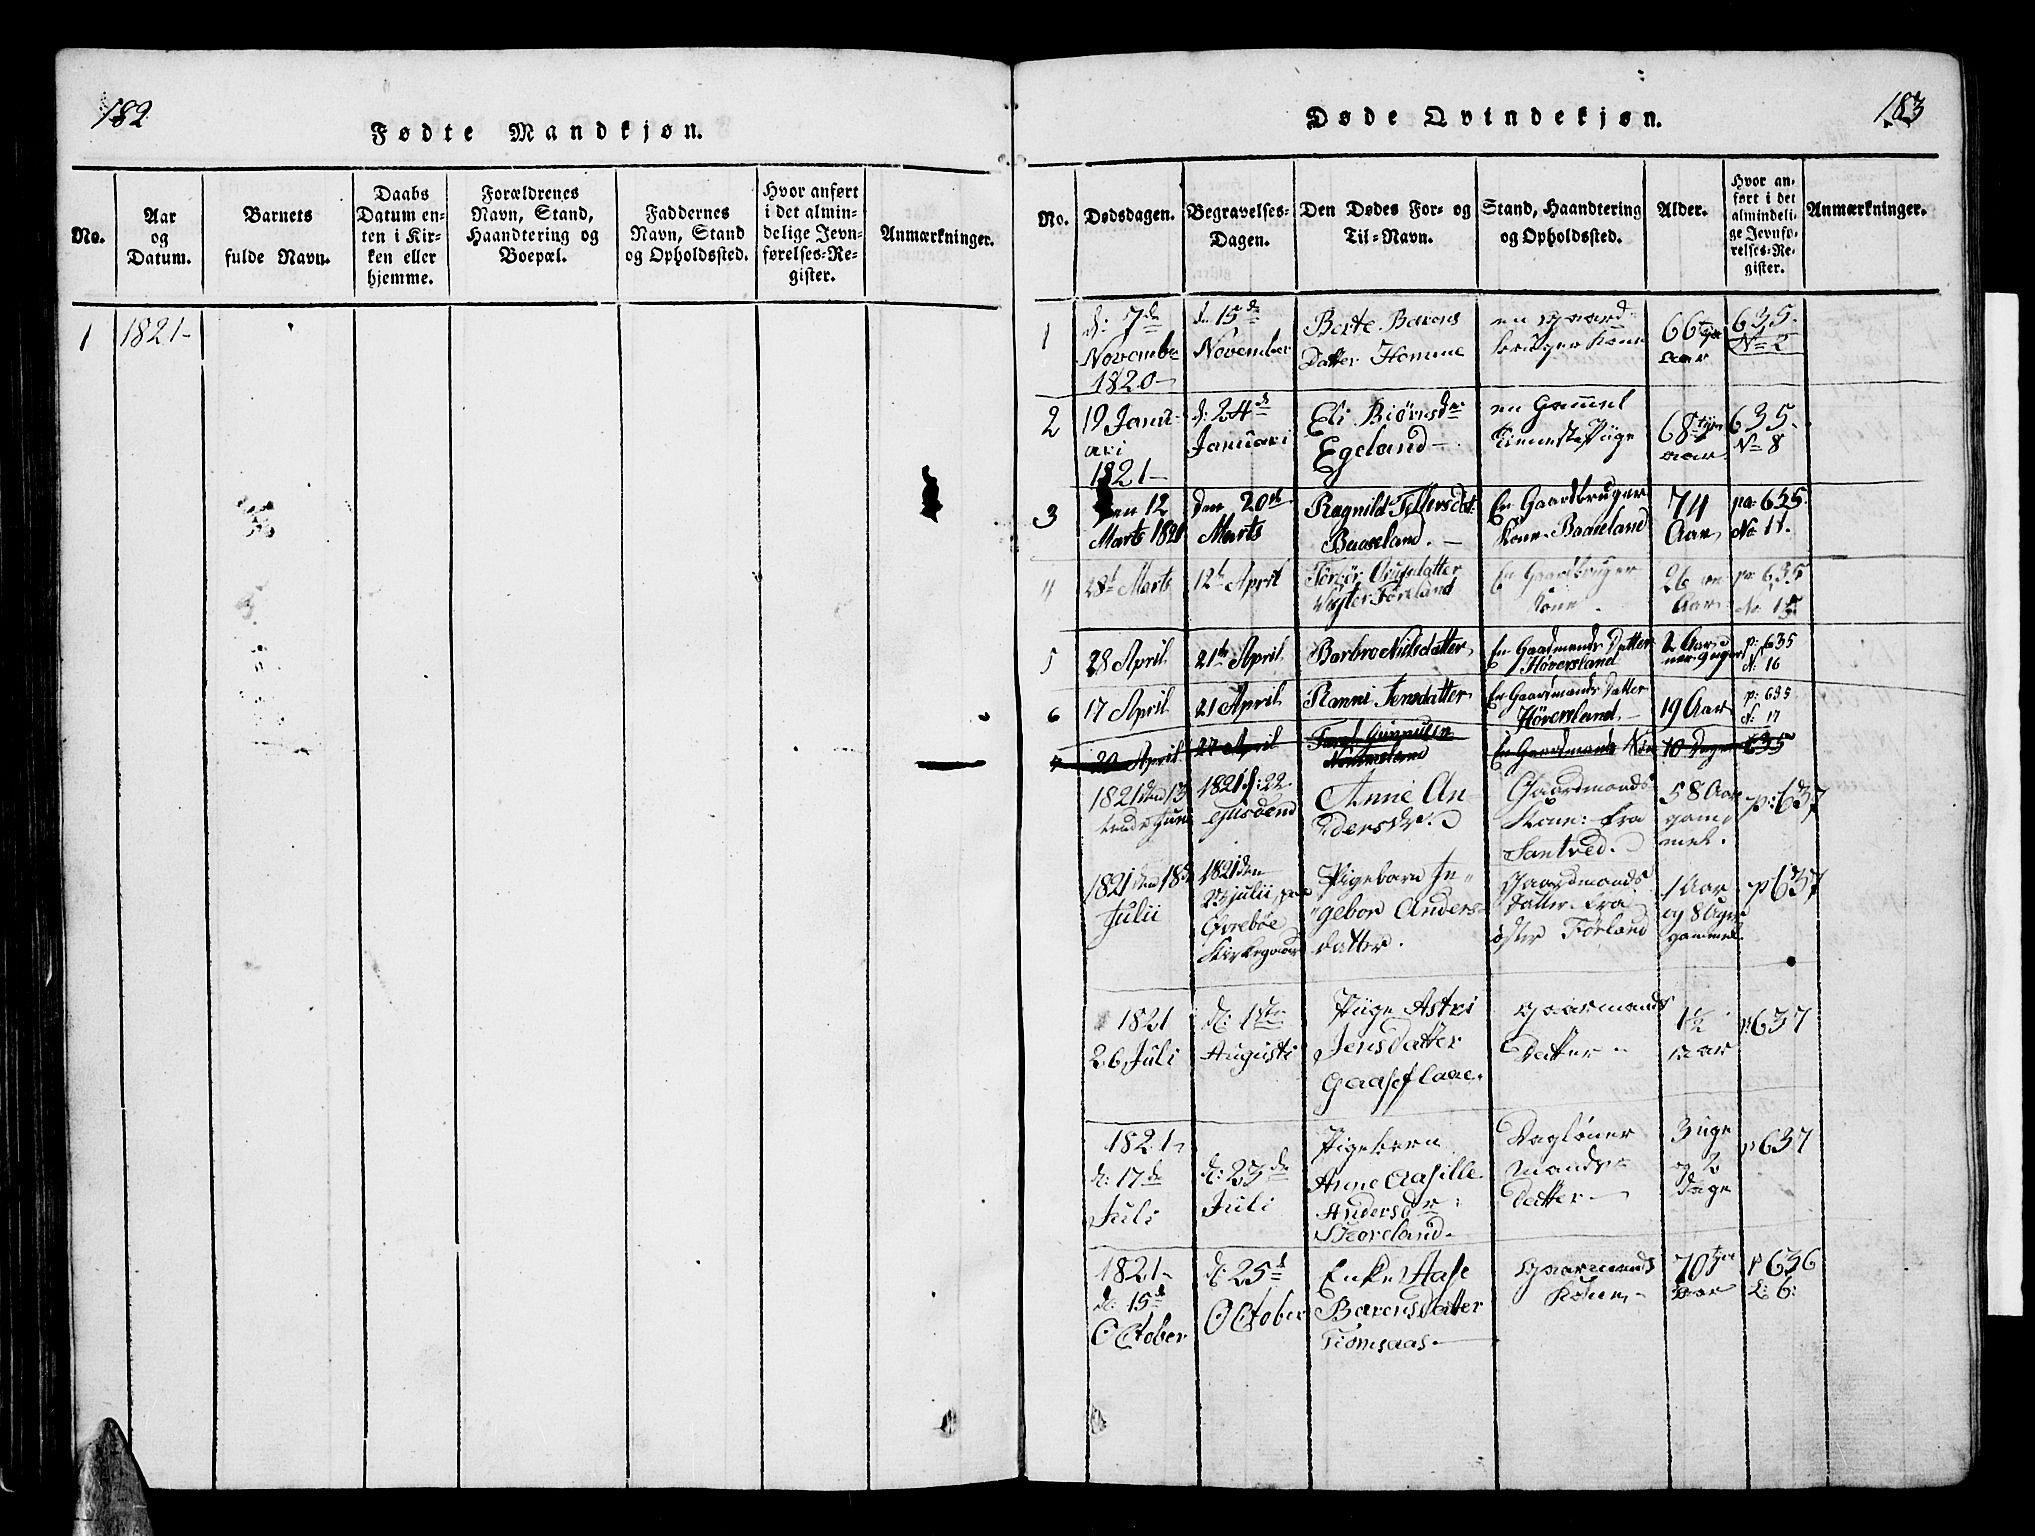 182
Fødte Mandkjøn.
No.
Aar
og
Datum.
Barnets
fulde Navn.
Daabs
Datum en-
ten i Kir-
ken eller
hjemme.
Forældrenes
Navn, Stand,
Haandtering og
Boepæl.
Faddernes
Navn, Stand
og Opholdssted.
Hvor anført
i det almin-
delige Jevn-
førelses-Re-
gister.
Anmærkninger.
1 1821-
183
Døde Qvindekjøn.
No.
Dødsdagen.
Begravelses-
Dagen.
Den Dødes For- og
Til-Navn.
Stand, Haandtering
og Opholdssted.
Alder.
Hvor an-
ført i det
almindeli-
ge Jevnfø-
relses-Re-
gister.
Anmærkninger.
1
d: 7de
Novembr
1820-
d. 15de
November
Berte Barons
Datter Homme
en gaard
bruger Kone
66
aar
635.
No 2
2
19 Janu-
ari
1821-
d: 24de
Januari
Eli Biørnsdr
Egeland-
en Gammel
68
aar
635.
No 8
3
Den 12
Marts 1821
Den 20de
Marts
Ragnild Tellersdat:
Baaseland. -
En Gaardbruger
Kone Baaseland
74
Aar
pa 635.
No 11.
4
28de Marts
12te April
Torbør Aasulsdatter
Vester Føreland
En Gaardbruger
Kone.
26
Aar
pa 635
No 15
5
28 April
21de April
Barbro Nilsdatter
En Gaardmands Datter
Høversland
2 Aar
p: 635
N. 16
6
17 April
21 April
Ranni Jensdatter
En Gaardmands Datter
Høversland
19 Aar
p: 635
N: 17
7
20 April
27 April
En Gaardmands Søn
10 Dage
635
1821 den 13
tende Juni
1821 d: 22
ejusdend
Anne An-
dersdr.
Gaardmands
Kone: fra
Santved.
58 Aar
gam-
mel.
p: 637
1821 den 18de
Julii
1821 den
23 julii, paa
Øvrebøe
Kirkegaar
Pigebarn In-
gebor Anders-
datter.
Gaardmands
Datter fra
øster Förland
1 Aar
og 8 Uger
gammel.
p 637
1821
26 Juli
d: 1ste
Augusti
Piige Astri
Jensdatter
Gaaseflaae.
gaarmands
Datter-
1½
aar
p 637
1821-
d: 17de
Juli
d: 23de
Juli
Pigebarn
Anne Aasille
Andersdr:
Skoreland-
Dagløner
mands-
Datter-
3 uge
og 2
dage
p 637
1821-
d: 15de
October
d: 25de
October
Enke Aase
Barensdatter
Tiømsaas-
gaarmands
Kone-
70tye
aar
p 636
L: 6: